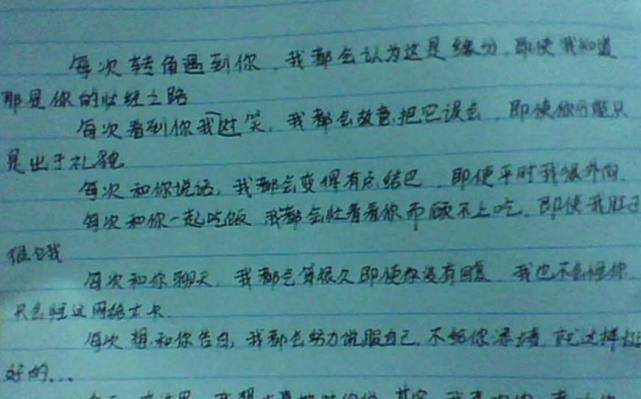 每次转角遇到你，我都会认为这是缘分，即使我知道
那是你的必经之路
每次看到你对我笑，我都会故意把它误会，即使你可能只
是出于礼貌
每次和你说话，我都会变得有点结巴，即使平时我很外向
每次和你一起吃饭，我都会忙着看你而顾不上吃，即使我肚子
很饿
每次和你聊天，我都会等很久即使你没有回复，我也不会怪你
只会怪这网络太卡
每次想和你告白，我都会努力说服自己，不给你添堵，就这样挺
好的...